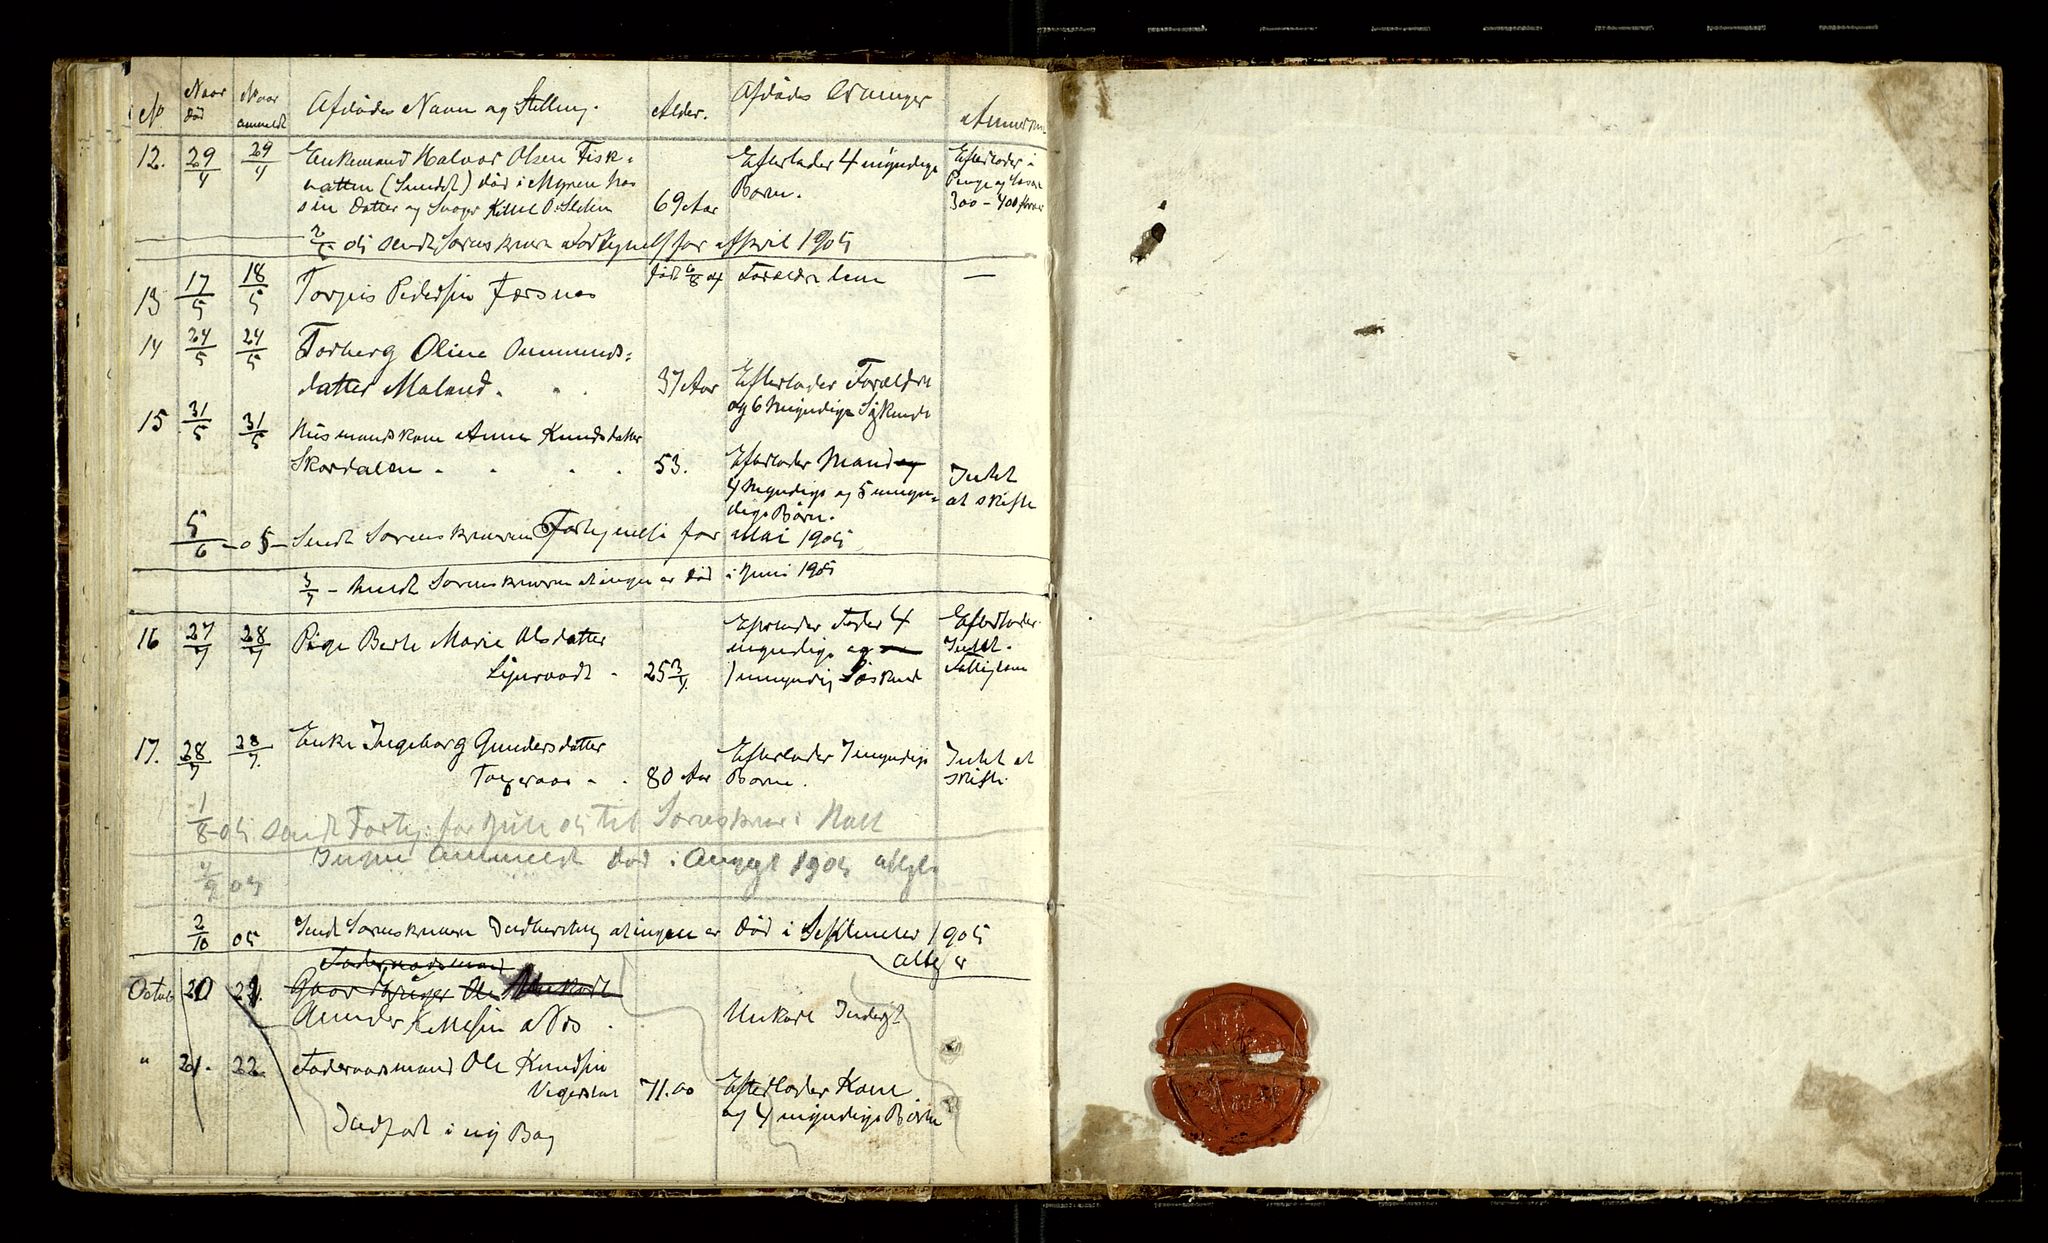 No Naar død Naar anmeldt Afdødes Navn og Stilling. Alder. Afdødes Arvinger
12. 29/4 29/4 Enkemand Halvor Olsen Fisk=
vatten (Sundet) død i Myren hos
sin datter og Svoger Kittel O.
69 Aar
Efterlader 4 myndige
Børn.
Efterlader i
Penge og
300 - 400 Kroner
05 sendt Sorenskriveren Fortegnelse for April 1905
13 17/5 18/5 Torjus Pedersen født 6/8 04 Forældrene —
14 24/5 24/5 Torberg Oline Ommunds=
datter Maland. 37 Aar
Efterlader Forældre
og 6 myndige Søskende
15 31/5 31/5 Husmandskone Anne Knudsdatter
Skordalen - - - . 53.
Efterlader Mand og
4 myndige og 5 umyn=
dige Børn.
Intet
at skifte
5/6 - 05 - Sendt Sorenskriveren Fortegnelse for Mai 1905
3/7 - sendt Sorenskriveren at ingen er død i Juni 1905
16 27/7 28/7 Pige Berte Marie Olsdatter
- 25 3/4
Efterlader Fader 4
myndige og
1 umyndig Søskend
Efterlader
Intet.
Fattiglem
17. 28/7 28/7 Enke Ingeborg Gundersdatter
- . 80 Aar
Efterlader 7 myndige
Børn.
Intet at
skifte.
1/8 - 05 sendt Forteg. for Juli 05 til Sorenskriver Hall
2/9 05 Ingen anmeldt død i August 1905
2/10 05 Sendt Sorenskriveren Indberetning at ingen er død i September 1905
Foderaadsmand
Octob 20 21. Gaardbruger Ole
Gunder Kittelsen Aas .
Ukort Indsigt
" 21. 22 Foderaadsmand Ole Knudsen
Vegerstøl 71.00
Efterlader Kone
og 4 myndige Børn
Indført i ny Bog